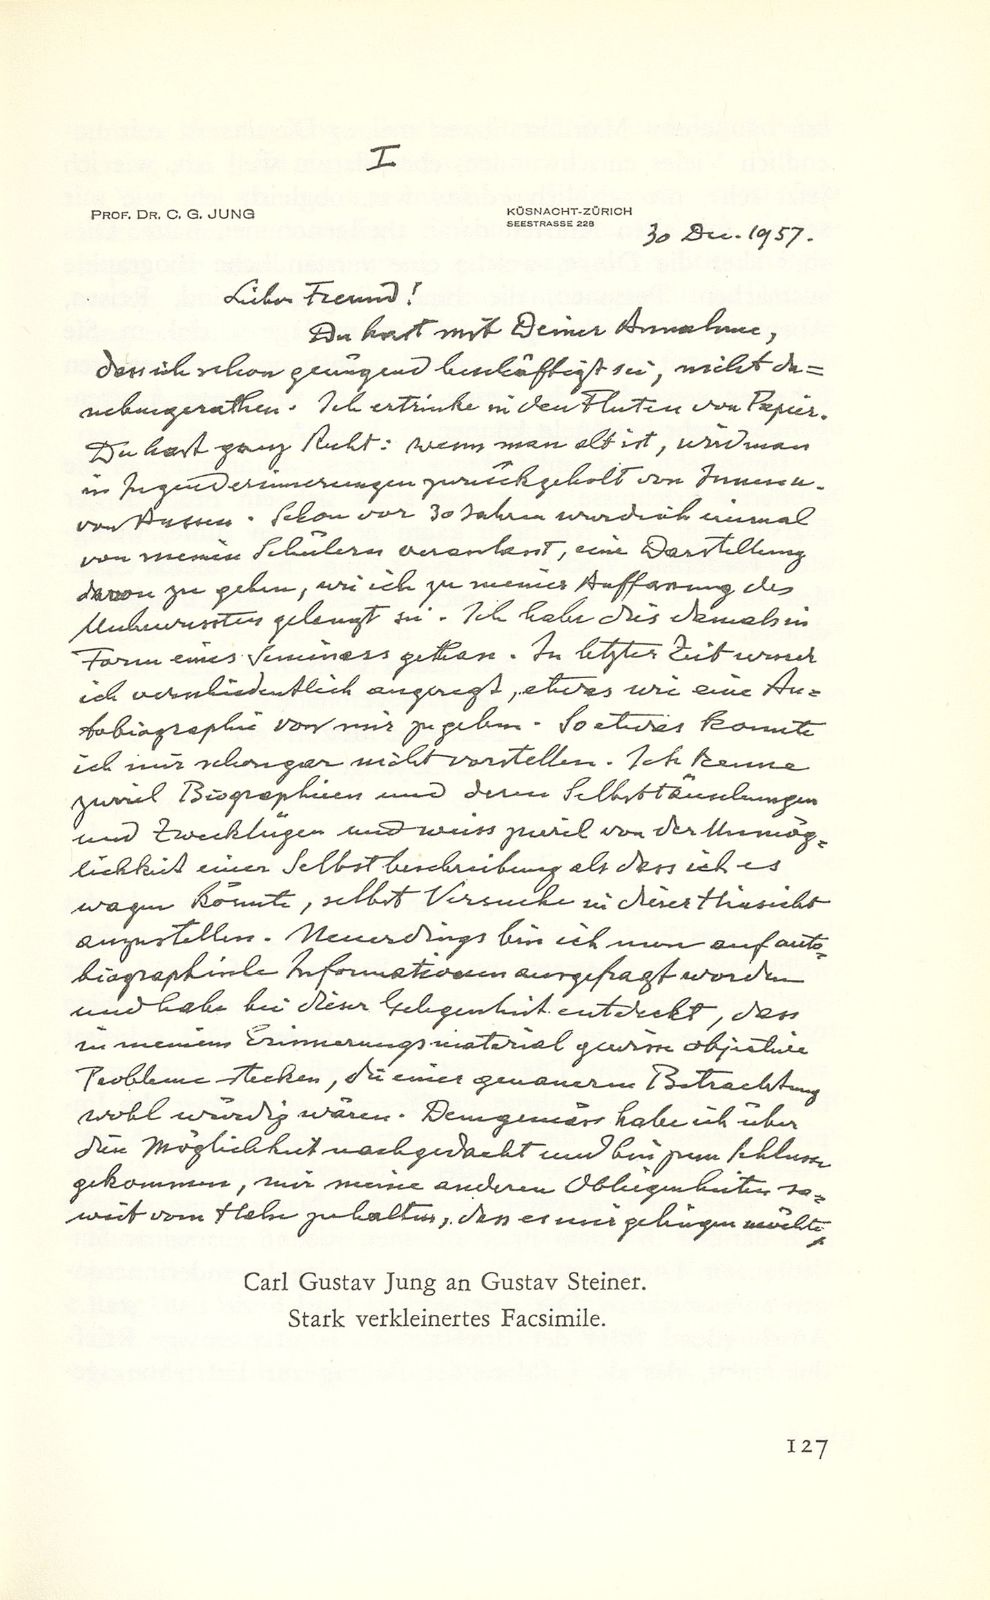 I
PROF. DR. C. G. JUNG
KÜSNACHT-ZÜRICH
SEESTRASSE 228
30 Dec. 1957.
Lieber Freund!
Du hast mit Deiner Annahme,
dass ich schon genügend beschäftigt sei, nicht da=
nebengerathen. Ich ertrinke in den Fluten von Papier.
Du hast ganz Recht: wenn man alt ist, wird man
in Jugenderinnerungen zurückgeholt von Innen u.
von Aussen. Schon vor 30 Jahren wurde ich einmal
von meinen Schülern veranlasst, eine Darstellung
davon zu geben, wie ich zu meiner Auffassung des
Unbewussten gelangt sei. Ich habe dies damals in
Form eines Seminars gethan. In letzter Zeit wurde
ich verschiedentlich angeregt, etwas wie eine Au=
tobiographie von mir zu geben. So etwas konnte
ich mir schon gar nicht vorstellen. Ich kenne
zuviel Biographieen und deren Selbsttäuschungen
und Zwecklügen und weiss zuviel von der Unmög=
lichkeit einer Selbstbeschreibung als dass ich es
wagen könnte, selbst Versuche in dieser Hinsicht
anzustellen. Neuerdings bin ich nun auf auto=
biographische Informationen ausgefragt worden
und habe bei dieser Gelegenheit entdeckt, dass
in meinem Erinnerungsmaterial gewisse objective
Probleme stecken, die einer genaueren Betrachtung
wohl würdig wären. Demgemäss habe ich über
die Möglichkeit nachgedacht und bin zum Schlusse
gekommen, mir meine anderen Obliegenheiten so=
weit vom Halse zu halten, dass es mir gelingen möchte,
Carl Gustav Jung an Gustav Steiner.
Stark verkleinertes Facsimile.
127